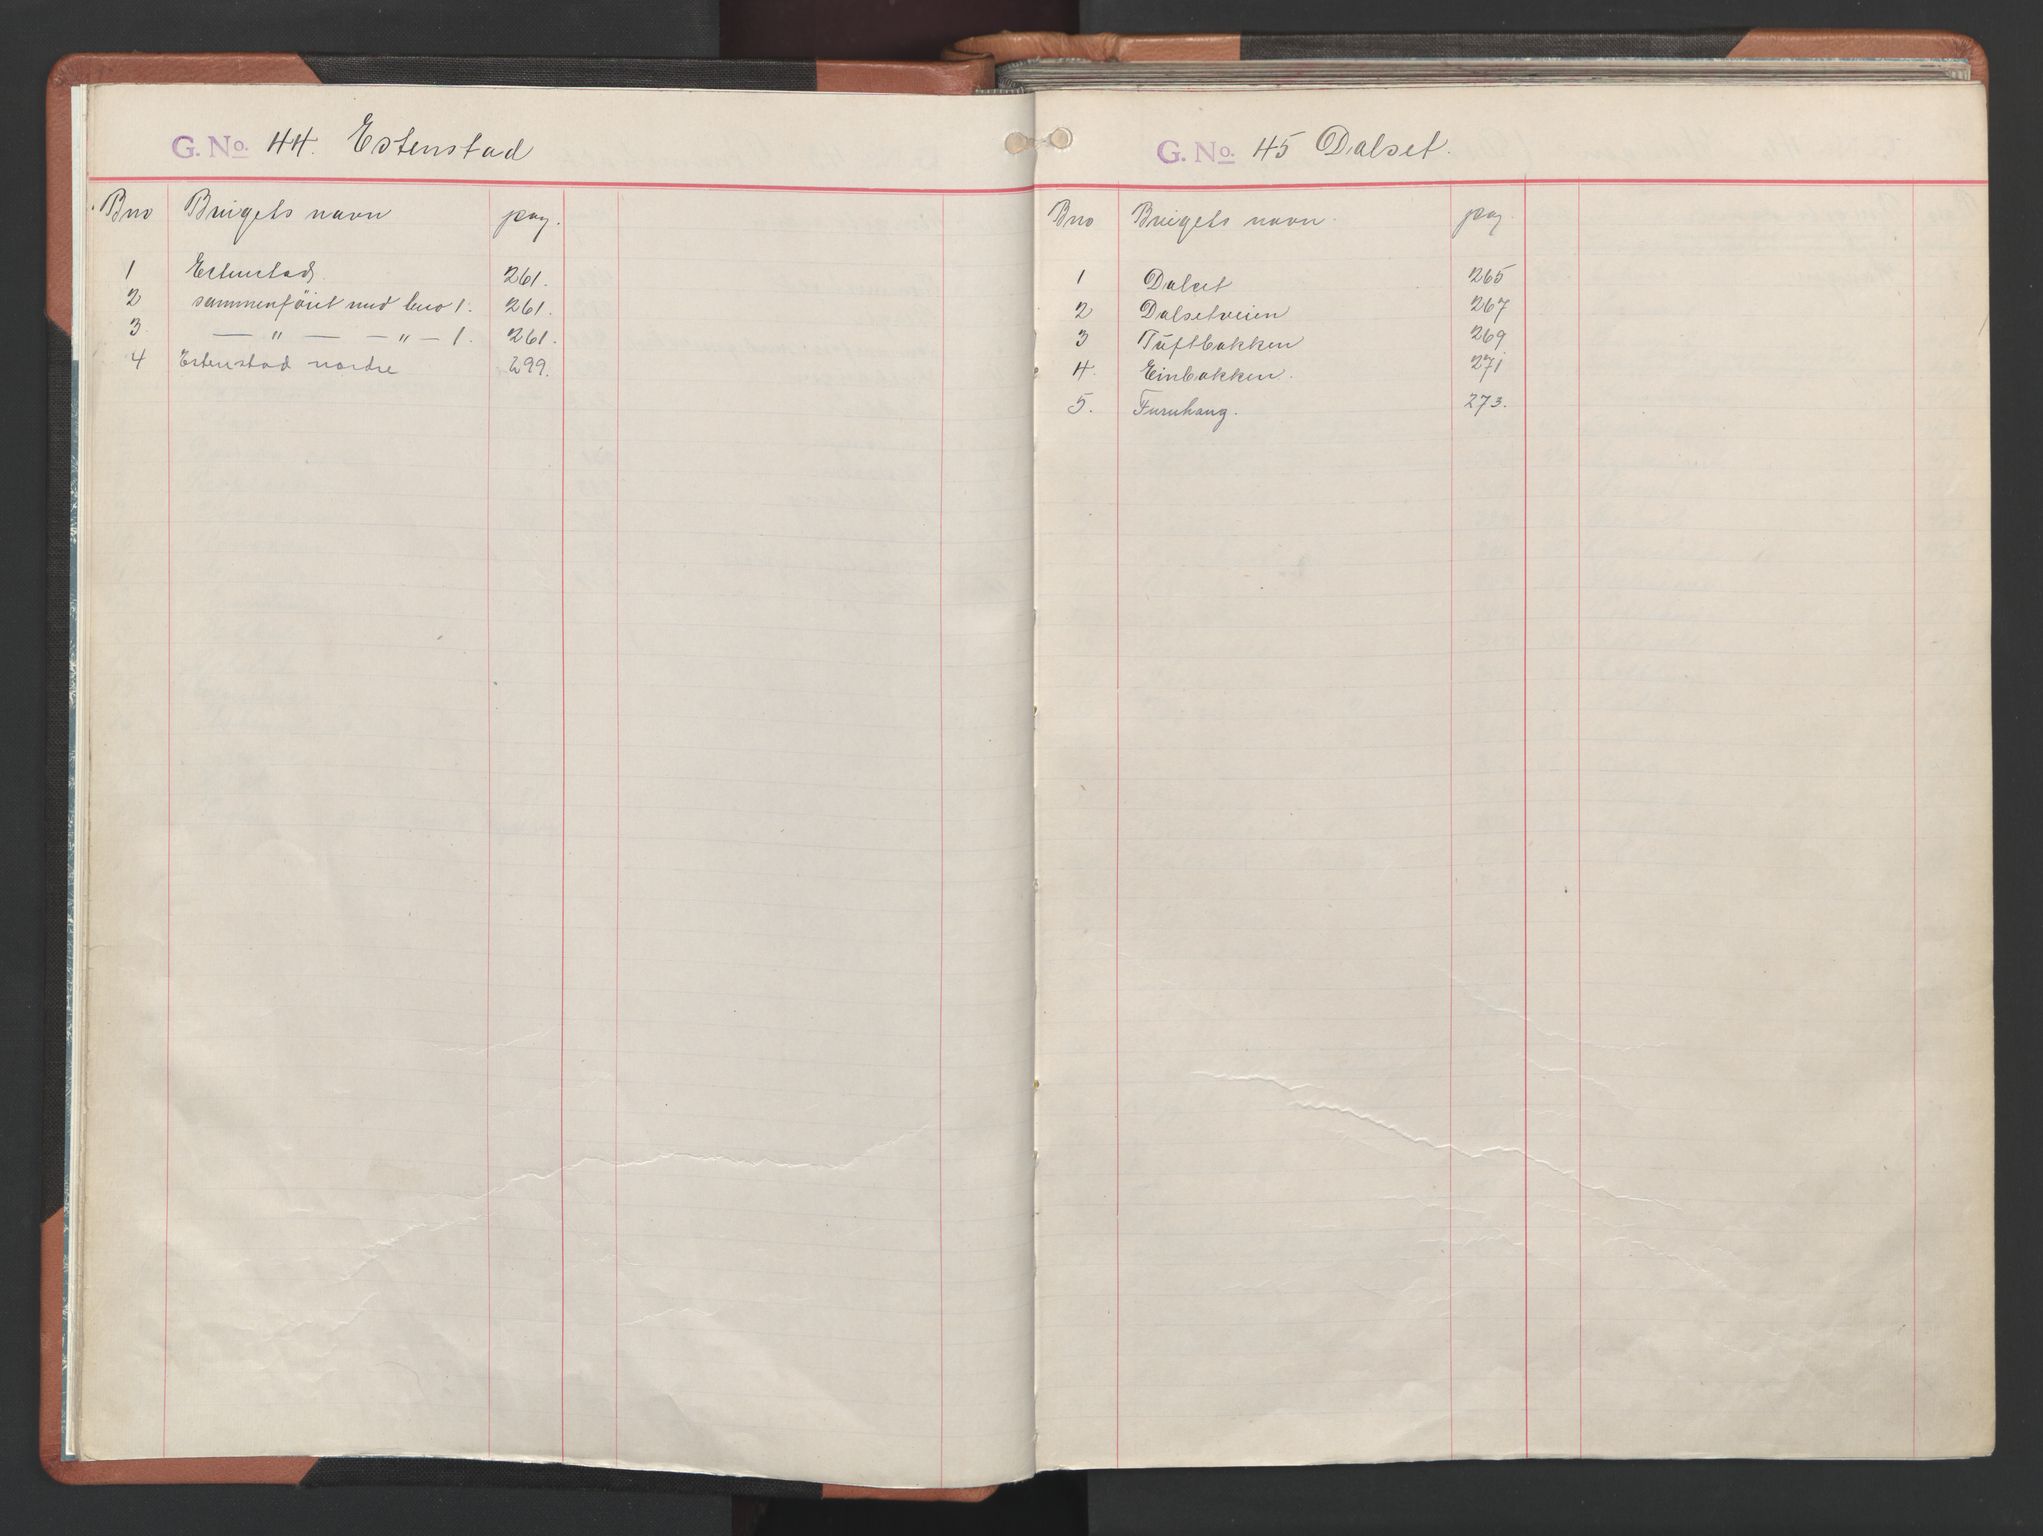 G. No. 44. Estenstad
Bno Brugets navn pag.
1 Estenstad 261.
2 sammenføiet med bno 1. 261.
3 — " — — " — 1. 261.
4 Estenstad nordre 299.
G. No. 45 Dalset.
Bno Brugets navn. pag.
1 Dalset 265
2 Dalsetveien 267
3 Tuftbakken 269
4. Einbakken. 271
5. Furuhaug. 273.